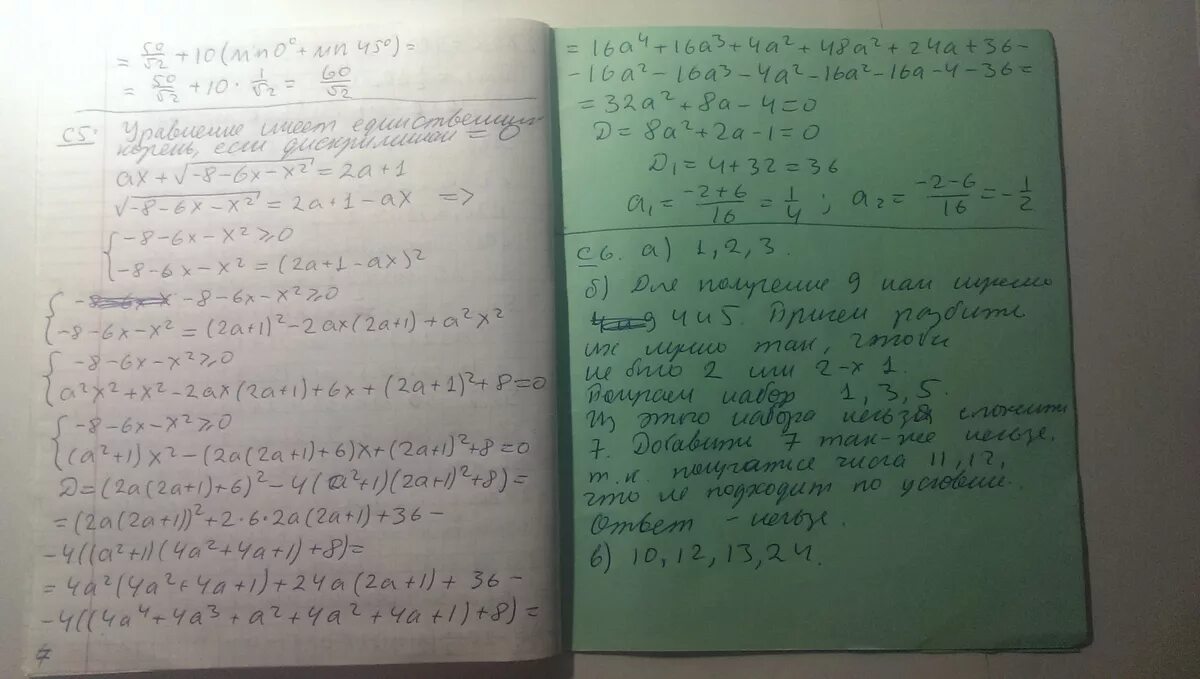 = 50/√2 + 10 (sin 0° + sin 45°) =
= 50/√2 + 10 · 1/√2 = 60/√2
С5: Уравнение имеет единственный
корень, если дискриминант = 0
ax + √(-8-6x-x²) = 2a+1
√(-8-6x-x²) = 2a+1-ax =>
{ -8-6x-x² ≥ 0
-8-6x-x² = (2a+1-ax)²
{ -8-6x-x² ≥ 0
-8-6x-x² = (2a+1)² - 2ax(2a+1) + a²x²
{ -8-6x-x² ≥ 0
a²x² + x² - 2ax(2a+1) + 6x + (2a+1)² + 8 = 0
{ -8-6x-x² ≥ 0
(a²+1)x² - (2a(2a+1)+6)x + (2a+1)² + 8 = 0
D = (2a(2a+1)+6)² - 4((a²+1)(2a+1)²+8) =
= (2a(2a+1))² + 2·6·2a(2a+1) + 36 -
-4((a²+1)(4a²+4a+1)+8) =
= 4a²(4a²+4a+1) + 24a(2a+1) + 36 -
-4((4a⁴+4a³+a²+4a²+4a+1)+8) =
7
= 16a⁴+16a³+4a²+48a²+24a+36-
-16a²-16a³-4a²-16a²-16a-4-36 =
= 32a²+8a-4 = 0
D = 8a²+2a-1 = 0
D₁ = 4+32 = 36
a₁ = (-2+6)/16 = 1/4 ; a₂ = (-2-6)/16 = -1/2
С6. а) 1, 2, 3.
б) Для получение 9 нам нужно
4 и 5. Причем разбить
их нужно так, чтобы
не было 2 или 2-х 1.
Получаем набор 1, 3, 5.
Из этого набора нельзя сложить
7. Добавить 7 так-же нельзя,
т.к. получатся числа 11, 12,
что не подходит по условию.
Ответ - нельзя.
в) 10, 12, 13, 24.